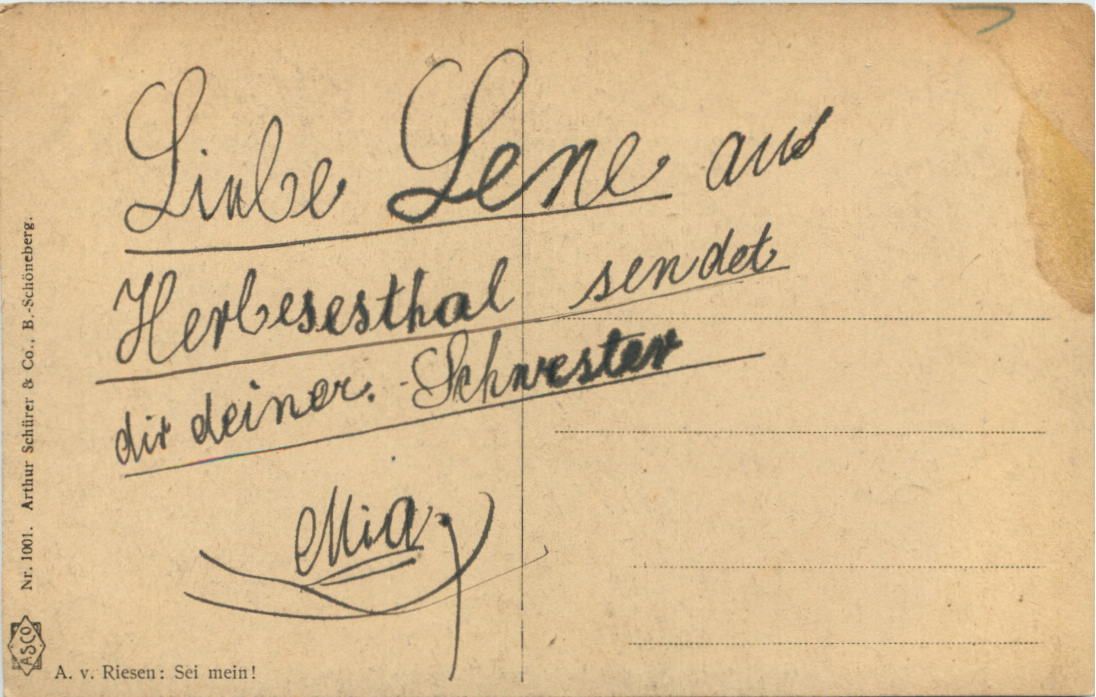 Liebe Lene aus
Herbesesthal sendet
dir deiner. Schwester
Mia
Nr. 1001. Arthur Schürer & Co., B.-Schöneberg.
ASCO
A. v. Riesen: Sei mein!